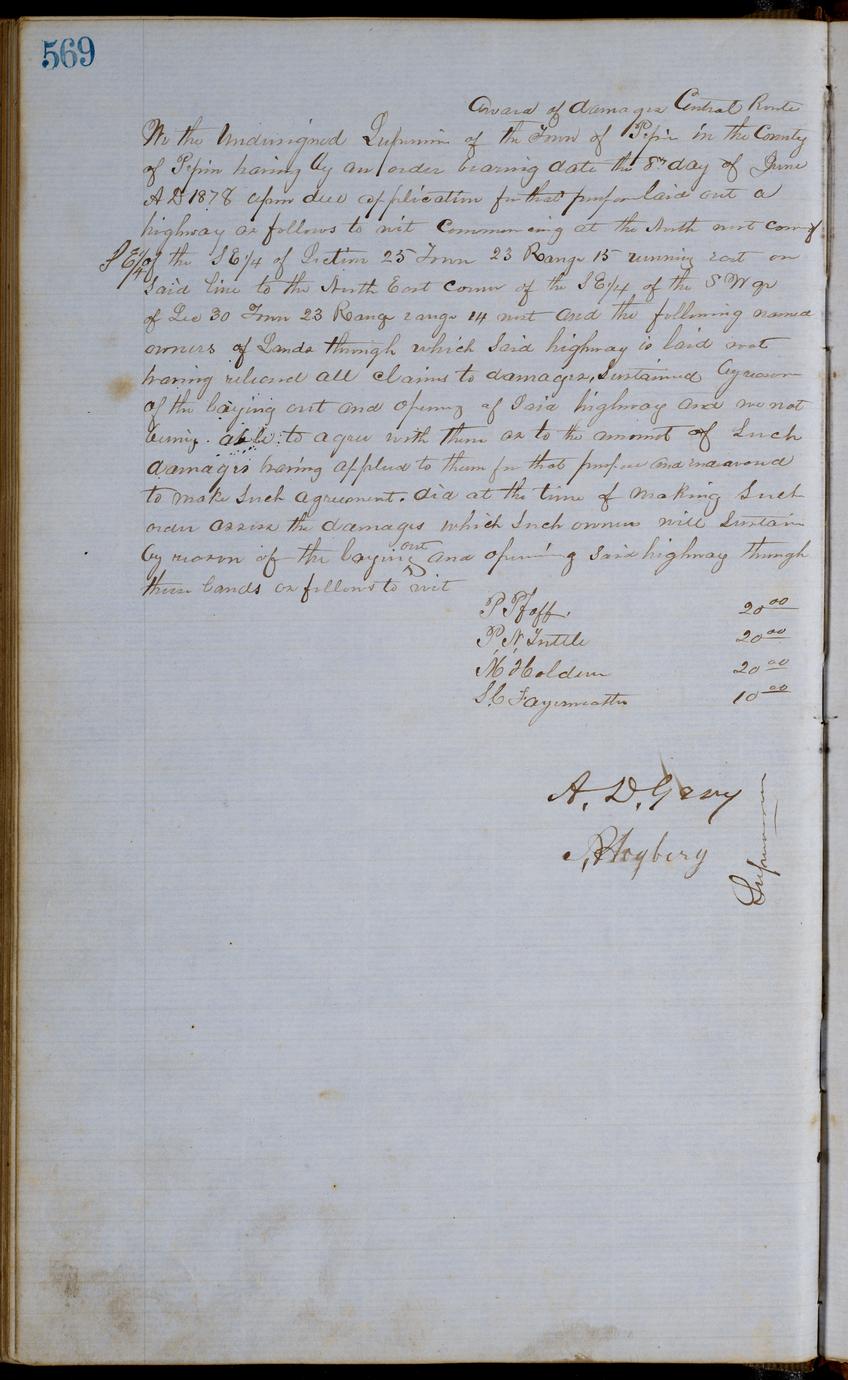 569
Award of damages Central Route
We the Undersigned Supervisors of the Town of Pepin in the County
of Pepin having by an order bearing date the 8th day of June
A D 1878 upon due application for that purpose laid out a
highway as follows to wit Commencing at the North west corner of
S E 1/4 of the S E 1/4 of Section 25 Town 23 Range 15 running east on
Said line to the North East corner of the S E 1/4 of the S W qr
of Sec 30 Town 23 Range range 14 west and the following named
owners of Lands through which Said highway is laid not
having released all claims to damages, Sustained by reason
of the laying out and opening of Said highway and we not
being able to agree with them as to the amount of Such
damages having applied to them for that purpose and endeavored
to make Such agreement. did at the time of making Such
order assess the damages which Such owners will Sustain
by reason of the laying out and opening Said highway through
these lands as follows to wit
P Pfaff. 20 00
P. N. Tuttle 20 00
M Holden 20 00
S. C Fayerweather 10 00
A. D. Gray
P. Hogberg
Supervisors